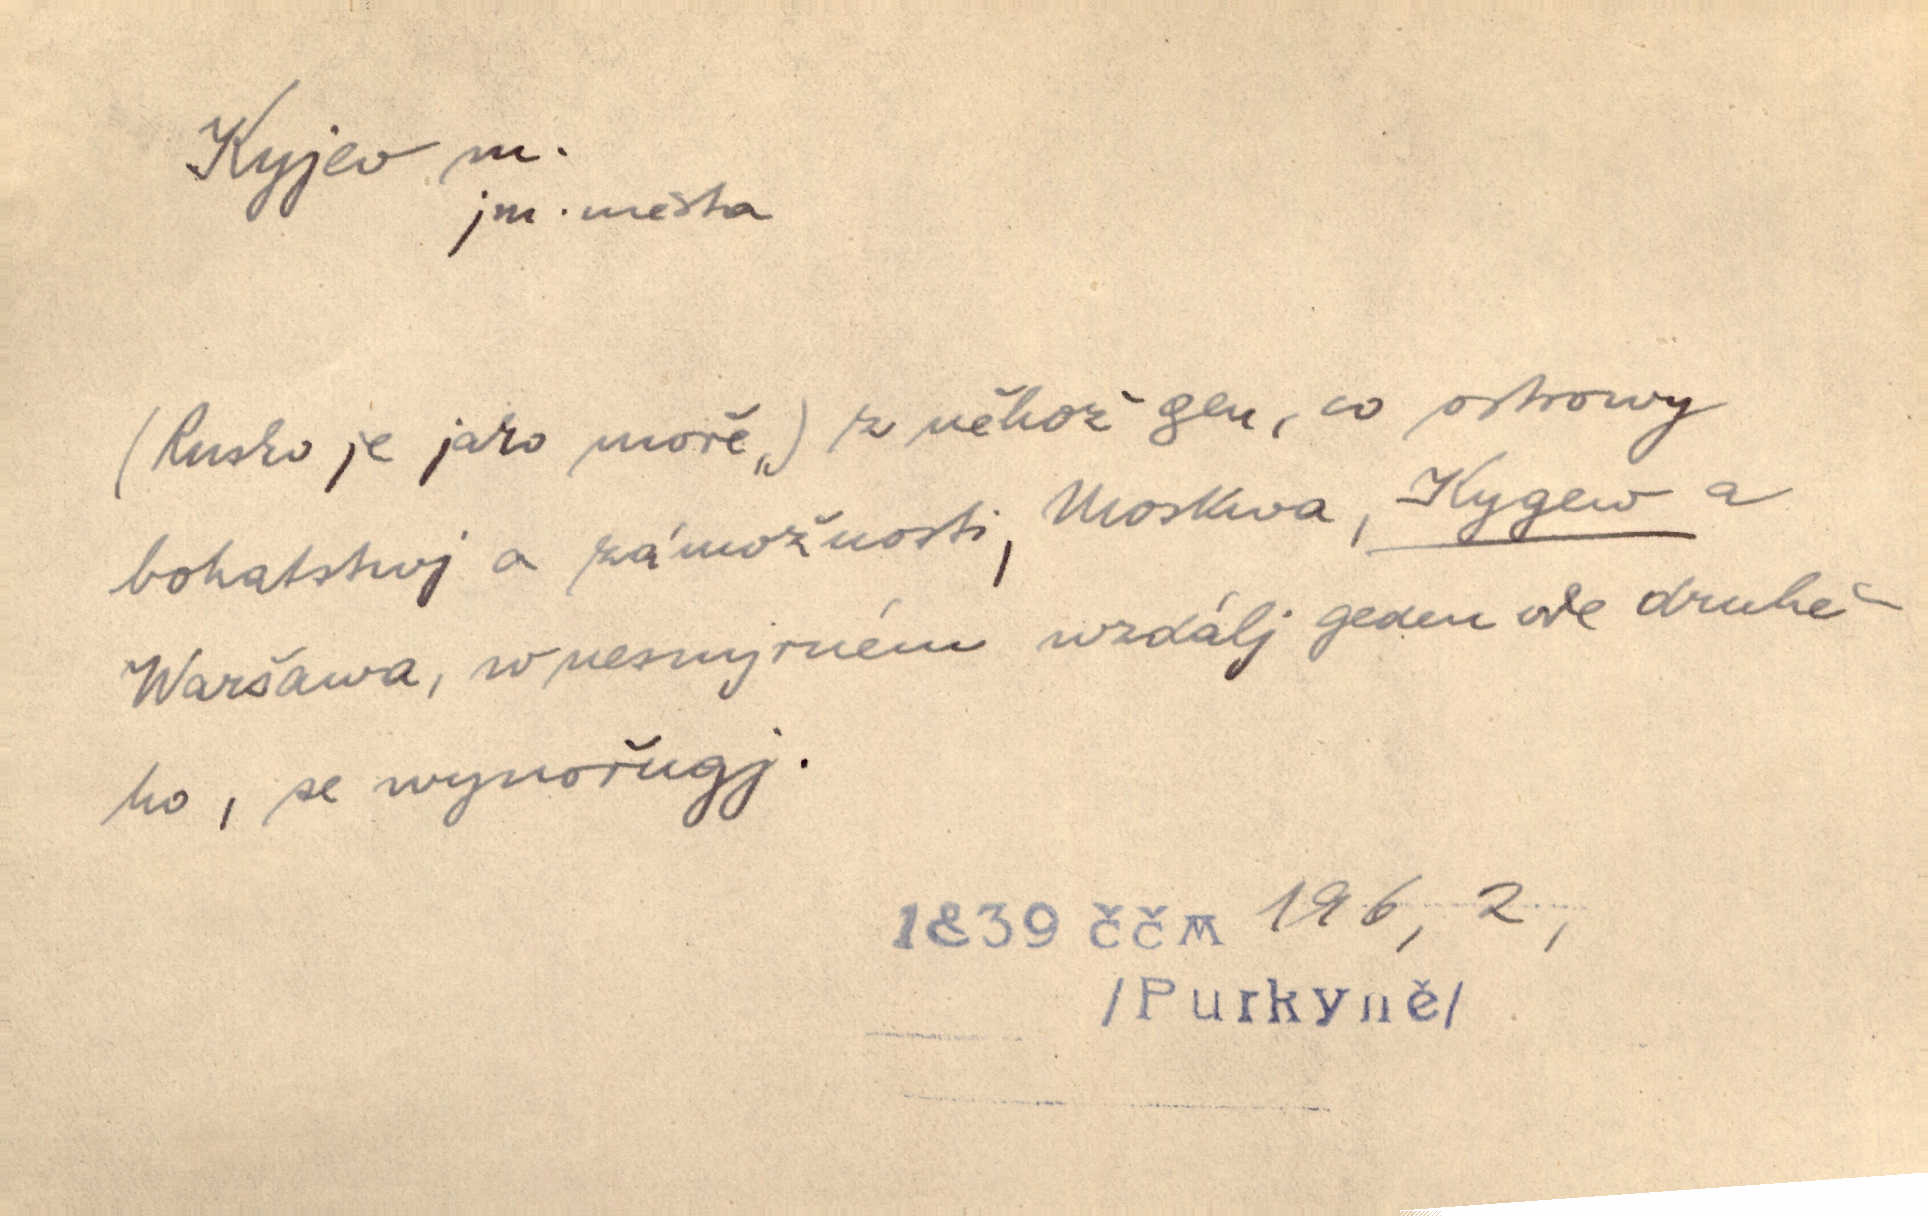 Kyjev m.
jm. města
(Rusko je jako moře„) z něhož gen, co ostrowy
bohatstwj a zámožnosti, Moskwa, Kygew a
Waršawa, w nesmjrném wzdálj geden ode druhé-
ho, se wynořugj.
1839 ččm 196, 2,
/Purkyně/